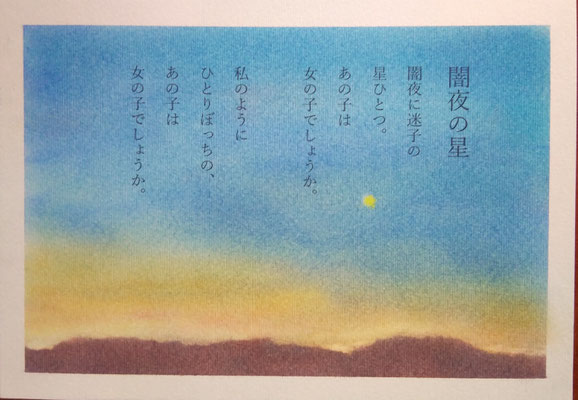 闇夜の星
闇夜に迷子の
星ひとつ。
あの子は
女の子でしょうか。
私のように
ひとりぼっちの、
あの子は
女の子でしょうか。